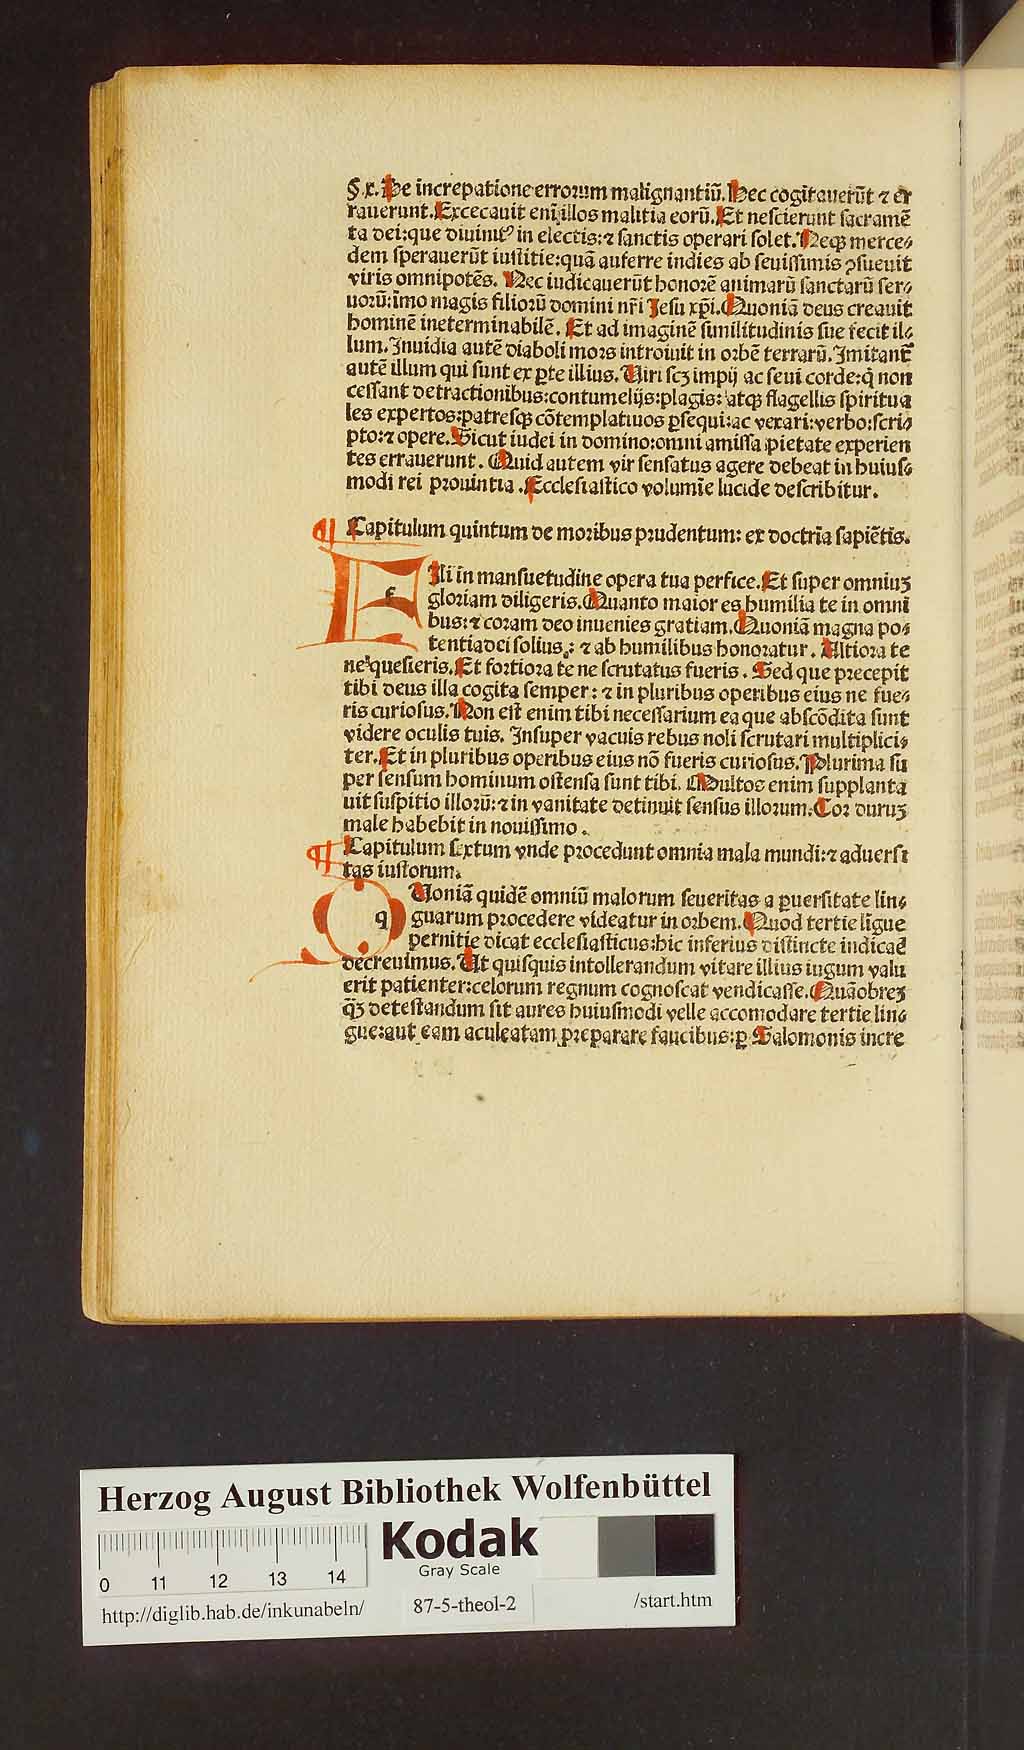 §.x. De increpatione errorum malignantiū. Hec cogitauerūt ⁊ er
rauerunt. Excecauit eni᷑ illos malitia eorū. Et nescierunt sacramē
ta dei: que diuinitꝰ in electis: ⁊ sanctis operari solet. Neqꝫ merce⸗
dem sperauerūt iustitie: quā auferre indies ab seuissimis ꝯsueuit
viris omnipotēs. Nec iudicauerūt honorē animarū sanctarū ser⸗
uorū: īmo magis filiorū domini nr̄i Jesu xp̄i. Quoniā deus creauit
hominē ineterminabilē. Et ad imaginē similitudinis sue fecit il⸗
lum. Inuidia autē diaboli mors introiuit in orbē terrarū. Imitant᷑
autē illum qui sunt ex ꝑte illius. Uiri scꝫ impij ac seui corde: q̇ non
cessant detractionibus: contumelijs: plagis: atqꝫ flagellis spiritua
les expertos: patresqꝫ cōtemplatiuos ꝑsequi: ac vexari: verbo: scri⸗
pto: ⁊ opere. Sicut iudei in domino: omni amissa pietate experien
tes errauerunt. Quid autem vir sensatus agere debeat in huius⸗
modi rei prouintia. Ecclesiastico volumīe lucide describitur.
¶ Capitulum quintum de moribus prudentum: ex doctrīa sapiētis.
E f Ili in mansuetudine opera tua perfice. Et super omniuꝫ
gloriam diligeris. Quanto maior es humilia te in omni
bus: ⁊ coram deo inuenies gratiam. Quoniā magna po⸗
tentia dei solius: ⁊ ab humilibus honoratur. Altiora te
ne quesieris. Et fortiora te ne scrutatus fueris. Sed que precepit
tibi deus illa cogita semper: ⁊ in pluribus operibus eius ne fue⸗
ris curiosus. Non est enim tibi necessarium ea que abscōdita sunt
videre oculis tuis. Insuper vacuis rebus noli scrutari multiplici⸗
ter. Et in pluribus operibus eius nō fueris curiosus. Plurima su
per sensum hominum ostensa sunt tibi. Multos enim supplanta
uit suspitio illorū: ⁊ in vanitate detinuit sensus illorum. Cor duruꝫ
male habebit in nouissimo.
¶ Capitulum sextum vnde procedunt omnia mala mundi: ⁊ aduersi
tas iustorum.
Q q Uoniā quidē omniū malorum seueritas a ꝑuersitate lin⸗
guarum procedere videatur in orbem. Quod tertie līgue
pernitie dicat ecclesiasticus: hic inferius distincte indicaē
decreuimus. Ut quisquis intollerandum vitare illius iugum valu
erit patienter: celorum regnum cognoscat vendicasse. Quāobreꝫ
q̄ꝫ detestandum sit aures huiusmodi velle accomodare tertie lin⸗
gue: aut eam aculeatam preparare faucibus: ꝑ Salomonis incre
Herzog August Bibliothek Wolfenbüttel
Kodak
Gray Scale
0 11 12 13 14
http://diglib.hab.de/inkunabeln/ 87-5-theol-2 /start.htm